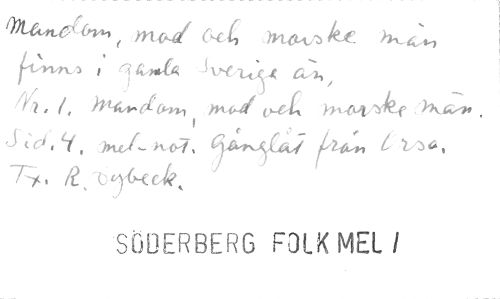 Mandom, mod och morske män
finns i gamla Sverige än,
Nr. 1. Mandom, mod och morske män.
Sid. 4. mel-not. Gånglåt från Orsa.
Tx. R. Dybeck.
SÖDERBERG FOLK MEL 1